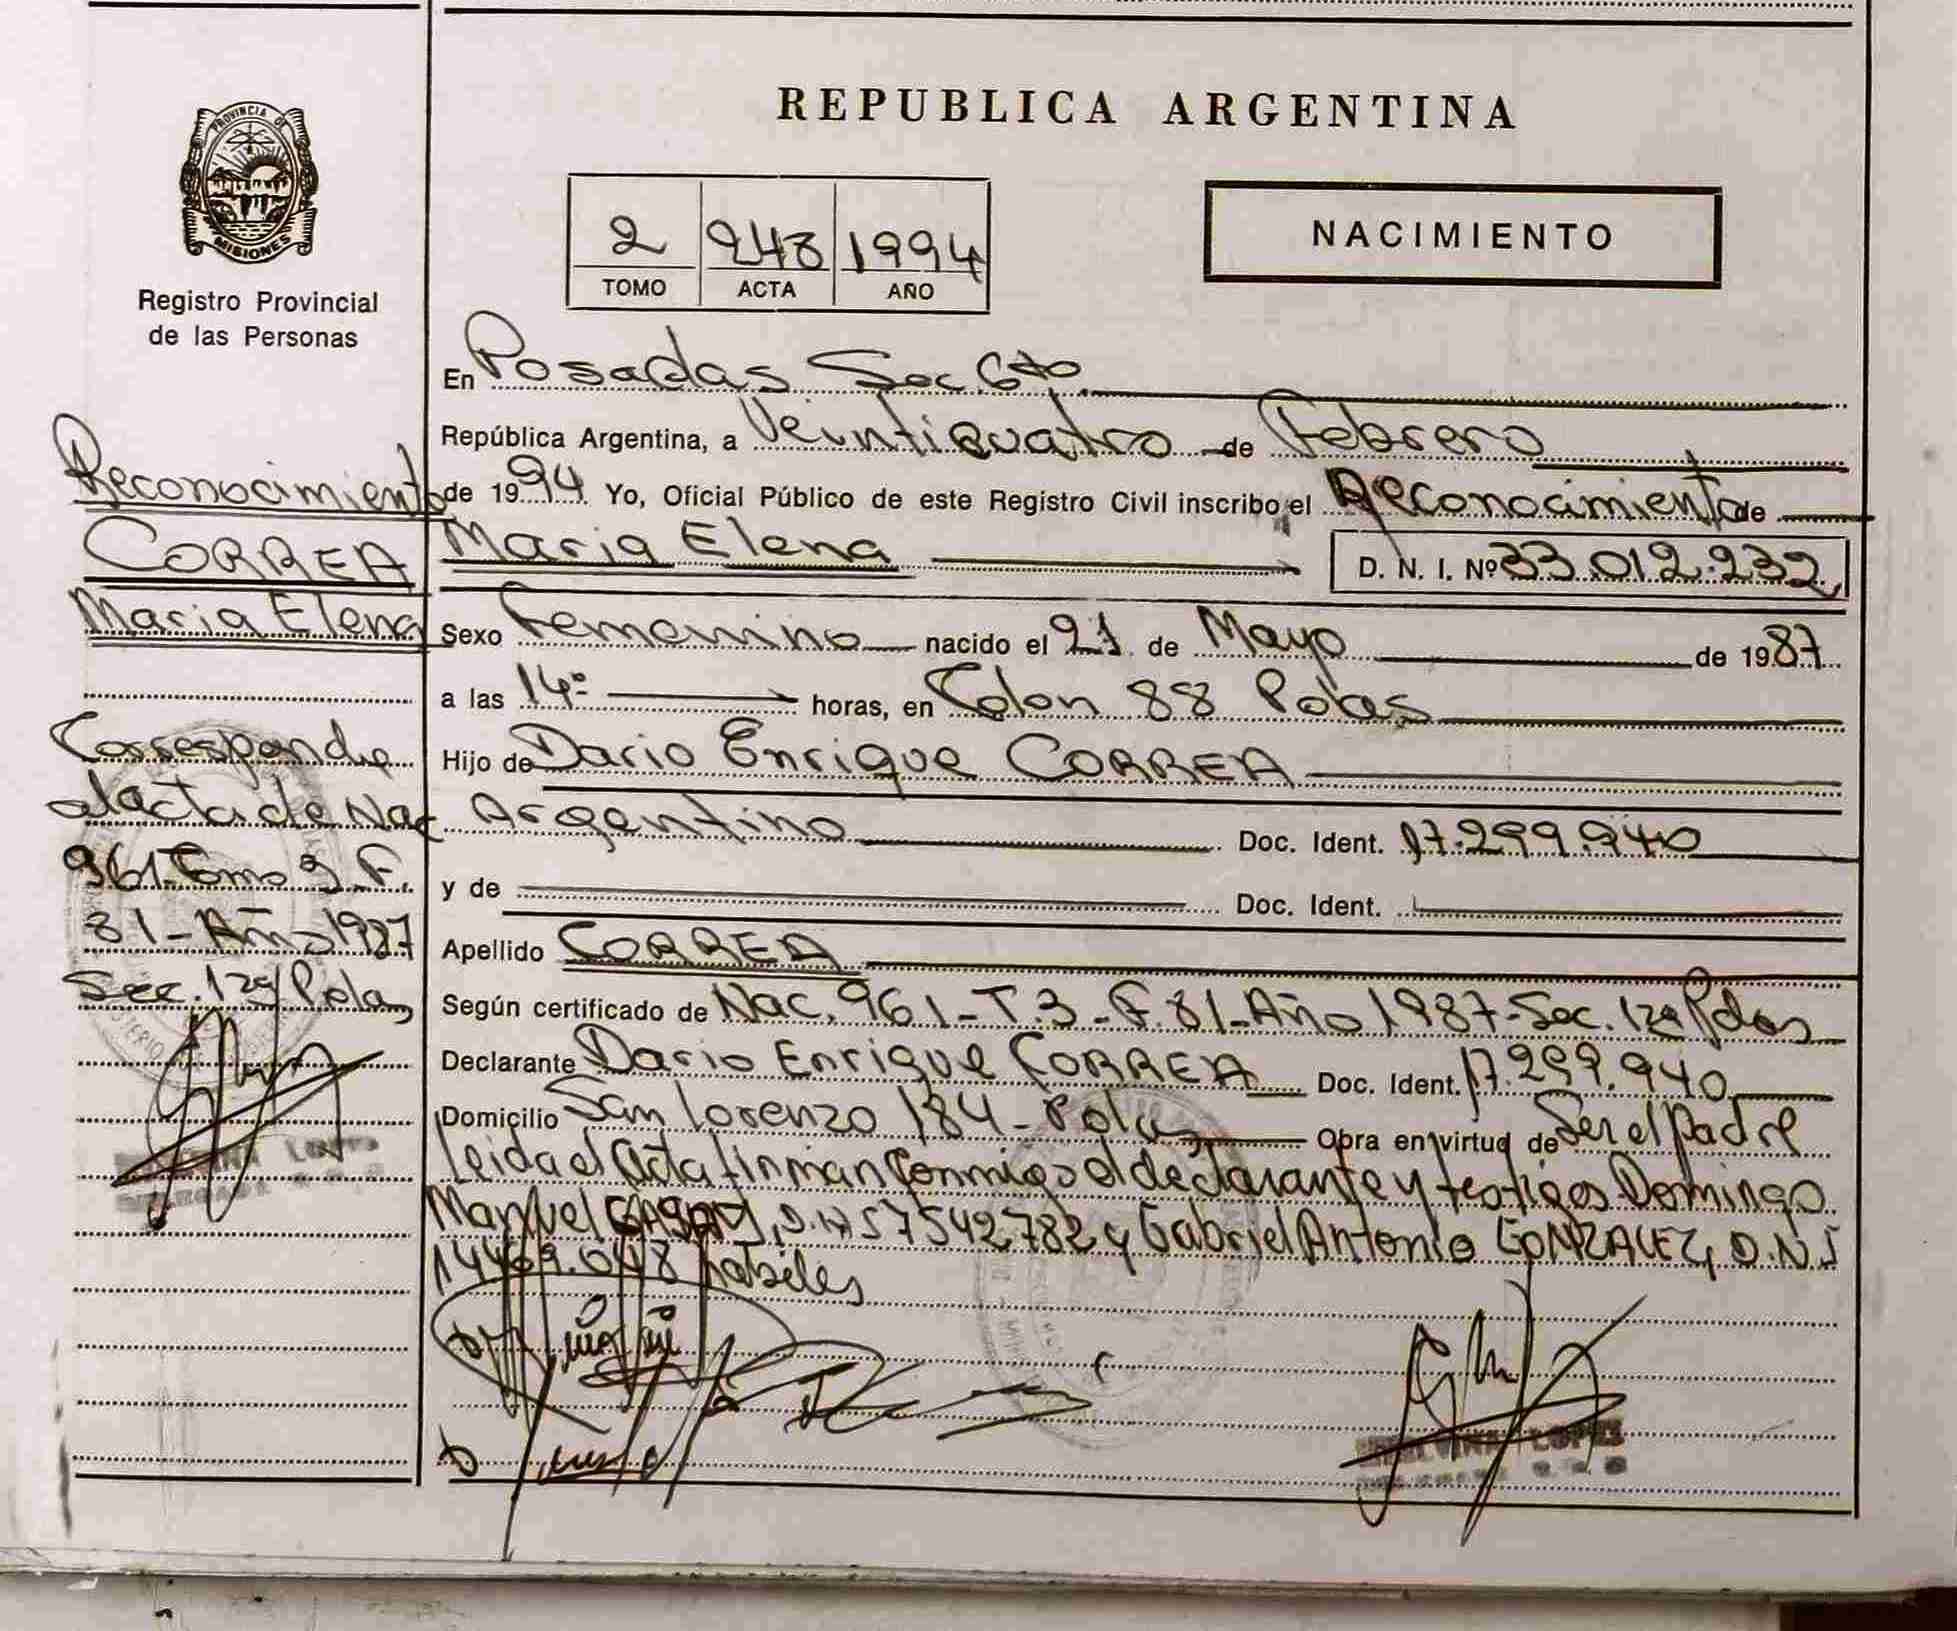 REPUBLICA ARGENTINA
PROVINCIA DE
MISIONES
Registro Provincial
de las Personas
2 248 1994
TOMO ACTA AÑO
NACIMIENTO
En Posadas Sec. 6ta
República Argentina, a Veintiquatro de Febrero
de 1994 Yo, Oficial Público de este Registro Civil inscribo el Reconocimiento de
Maria Elena D. N. I. Nº 33.012.232
Sexo Femenino nacido el 21 de Mayo de 1987
a las 14º horas, en Colon 88 Pdas
Hijo de Dario Enrique CORREA
Argentino Doc. Ident. 17.299.940
y de Doc. Ident.
Apellido CORREA
Según certificado de Nac. 961 - T.3 - F.81 - Año 1987 - Sec. 1ra Pdas
Declarante Dario Enrique CORREA Doc. Ident. 17.299.940
Domicilio San Lorenzo 184 - Pdas Obra en virtud de Ser el Padre
Leida el Acta firman conmigo el declarante y testigos Domingo
Manuel D.N.I 7542782 y Gabriel Antonio GONZALEZ, D.N.I
14469.048 habiles
Reconocimiento
CORREA
Maria Elena
Corresponde
al acta de Nac
961 Tomo 3 F.
81 - Año 1987
Sec. 1ra Pdas
LOPEZ
LOPEZ